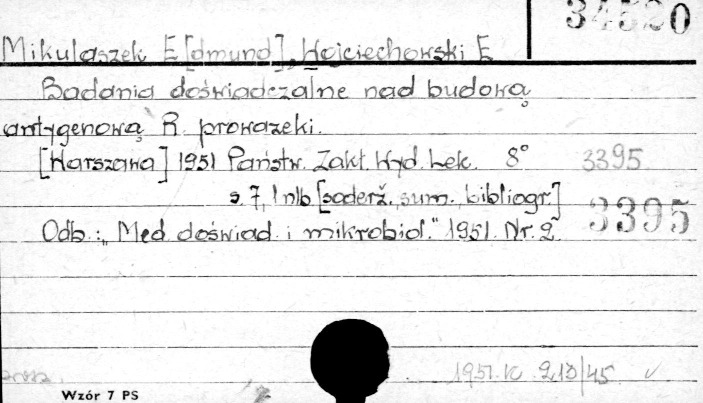 34520
Mikulaszek E[dmund], Wojciechowski E
Badania doświadczalne nad budową
antygenową R. prowazeki.
[Warszawa] 1951 Państw. Zakł. Wyd. Lek. 8° 3395
s. 7, 1 nlb. [soderž., sum., bibliogr.]
3395
Odb.: „Med. doświad. i mikrobiol." 1951. Nr. 2.
1957. K. 213/45
Wzór 7 PS